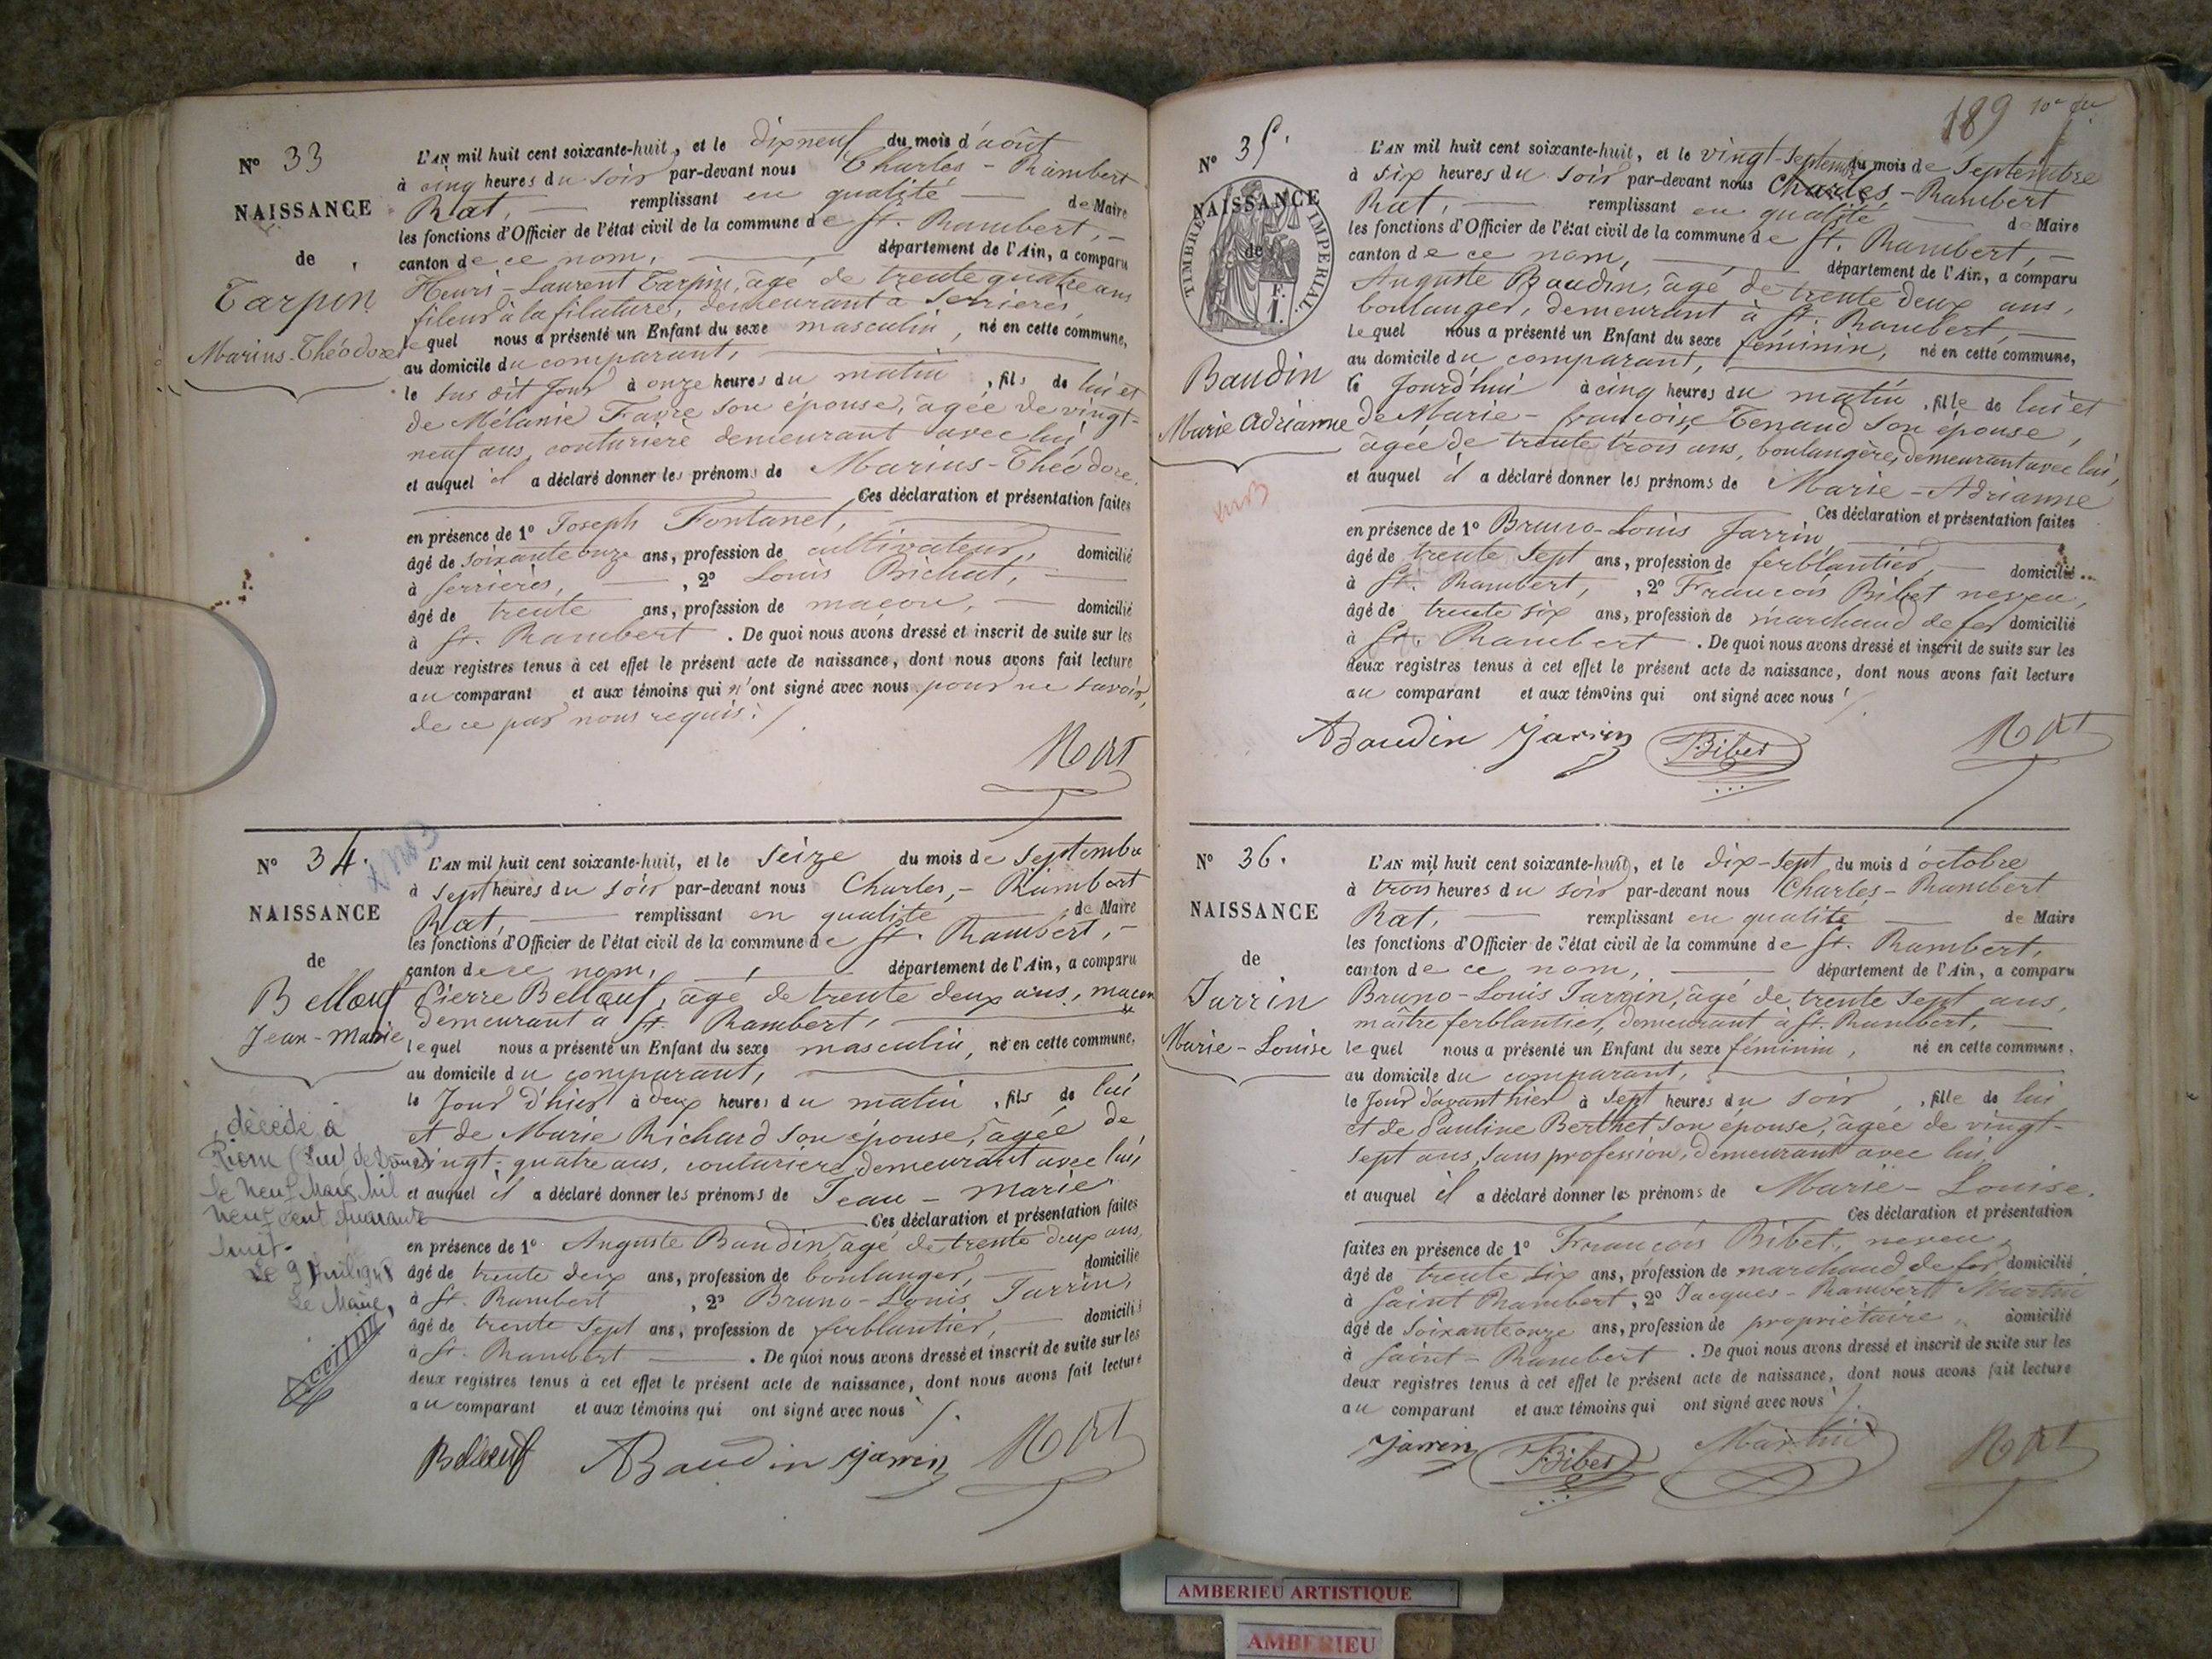 N° 33
NAISSANCE
de
Tarpin
Marius-Théodore
L'AN mil huit cent soixante-huit, et le dix neuf du mois d'août
à cinq heures du soir par-devant nous Charles - Rambert
Rat, remplissant en qualité de Maire
les fonctions d'Officier de l'état civil de la commune de St. Rambert,
canton de ce nom, département de l'Ain, a comparu
Henri-Laurent Tarpin, âgé de trente quatre ans
fileur à la filature, demeurant à Serrières,
lequel nous a présenté un Enfant du sexe masculin, né en cette commune,
au domicile du comparant,
le sus dit jour à onze heures du matin, fils de lui et
de Mélanie Favre son épouse, âgée de vingt-
neuf ans, couturière demeurant avec lui,
et auquel il a déclaré donner les prénoms de Marius-Théodore.
Ces déclaration et présentation faites
en présence de 1° Joseph Fontanel,
âgé de soixante onze ans, profession de cultivateur, domicilié
à Serrières, 2° Louis Bichat,
âgé de trente ans, profession de maçon, domicilié
à St. Rambert. De quoi nous avons dressé et inscrit de suite sur les
deux registres tenus à cet effet le présent acte de naissance, dont nous avons fait lecture
au comparant et aux témoins qui n'ont signé avec nous pour ne savoir,
de ce par nous requis.
Rat
N° 34.
NAISSANCE
de
Bellœuf
Jean-Marie
L'AN mil huit cent soixante-huit, et le seize du mois de Septembre
à sept heures du soir par-devant nous Charles, - Rambert
Rat, remplissant en qualité de Maire
les fonctions d'Officier de l'état civil de la commune de St. Rambert,
canton de ce nom, département de l'Ain, a comparu
Pierre Bellœuf, âgé de trente deux ans, maçon
demeurant à St. Rambert,
lequel nous a présenté un Enfant du sexe masculin, né en cette commune,
au domicile du comparant,
le Jour d'hier à deux heures du matin, fils de lui
et de Marie Richard son épouse, âgée de
vingt-quatre ans, couturière demeurant avec lui,
et auquel il a déclaré donner les prénoms de Jean - Marie.
Ces déclaration et présentation faites
en présence de 1° Auguste Baudin, âgé de trente deux ans,
âgé de trente deux ans, profession de boulanger, domicilié
à St. Rambert, 2° Bruno-Louis Jarrin,
âgé de trente sept ans, profession de ferblantier, domicilié
à St. Rambert. De quoi nous avons dressé et inscrit de suite sur les
deux registres tenus à cet effet le présent acte de naissance, dont nous avons fait lecture
au comparant et aux témoins qui ont signé avec nous.
décédé à
Riom (Puy de Dôme)
le neuf Mars mil
neuf cent quarante
huit.
Le 9 Avril 1948
Le Maire,
Bellœuf ABaudin Jarrin Rat
189
N° 35.
NAISSANCE
de
TIMBRE IMPÉRIAL
F.
1.
Baudin
Marie Adrianne
L'AN mil huit cent soixante-huit, et le vingt-Septembre du mois de Septembre
à six heures du soir par-devant nous Charles - Rambert
Rat, remplissant en qualité de Maire
les fonctions d'Officier de l'état civil de la commune de St. Rambert,
canton de ce nom, département de l'Ain, a comparu
Auguste Baudin, âgé de trente deux ans,
boulanger, demeurant à St. Rambert,
lequel nous a présenté un Enfant du sexe féminin, né en cette commune,
au domicile du comparant,
le Jourd'hui à cinq heures du matin, fille de lui et
de Marie - françoise Tenaud son épouse,
âgée de trente trois ans, boulangère, demeurant avec lui,
et auquel il a déclaré donner les prénoms de Marie - Adrianne
Ces déclaration et présentation faites
en présence de 1° Bruno-Louis Jarrin
âgé de trente sept ans, profession de ferblantier, domicilié
à St. Rambert, 2° François Bibet neveu,
âgé de trente six ans, profession de marchand de fer domicilié
à St. Rambert. De quoi nous avons dressé et inscrit de suite sur les
deux registres tenus à cet effet le présent acte de naissance, dont nous avons fait lecture
au comparant et aux témoins qui ont signé avec nous.
ABaudin Jarrin Bibet Rat
N° 36.
NAISSANCE
de
Jarrin
Marie-Louise
L'AN mil huit cent soixante-huit, et le dix-sept du mois d'octobre
à trois heures du soir par-devant nous Charles, - Rambert
Rat, remplissant en qualité de Maire
les fonctions d'Officier de l'état civil de la commune de St. Rambert,
canton de ce nom, département de l'Ain, a comparu
Bruno-Louis Jarrin, âgé de trente sept ans,
maître ferblantier, demeurant à St. Rambert,
lequel nous a présenté un Enfant du sexe féminin, né en cette commune.
au domicile du comparant,
le Jour d'avant hier à sept heures du soir, fille de lui
et de Pauline Berthet son épouse, âgée de vingt-
sept ans, sans profession, demeurant avec lui,
et auquel il a déclaré donner les prénoms de Marie - Louise.
Ces déclaration et présentation
faites en présence de 1° François Bibet, neveu
âgé de trente six ans, profession de marchand de fer domicilié
à Saint Rambert, 2° Jacques-Rambert Martin
âgé de soixante onze ans, profession de propriétaire, domicilié
à Saint-Rambert. De quoi nous avons dressé et inscrit de suite sur les
deux registres tenus à cet effet le présent acte de naissance, dont nous avons fait lecture
au comparant et aux témoins qui ont signé avec nous.
Jarrin Bibet Martin Rat
AMBERIEU ARTISTIQUE
AMBERIEU